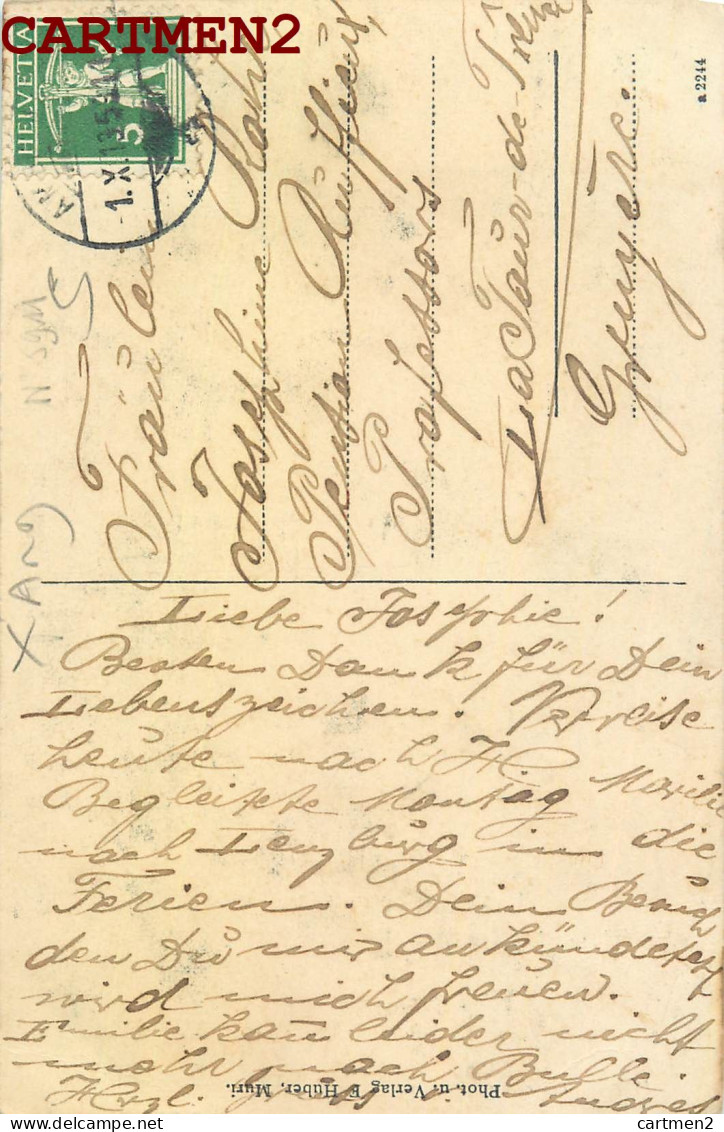 CARTMEN2
HELVETIA
5
1.X.13
a 2244
Fräulein
Josephine
Pension Ruffieux,
Professors
La Tour-de-Trême
Gruyère.
N° 59M
X Arg
Liebe Josephie!
Besten Dank für Dein
Lebenszeichen. Verreise
heute nach
Begleitete Montag
nach Lenzburg in die
Ferien. Dein Besuch
den Du mir ankündetest
wird mich freuen.
Familie kam leider nicht
mehr nach Bulle.
Herzl. Gruss
Phot. u. Verlag F. Huber, Muri.
cartmen2